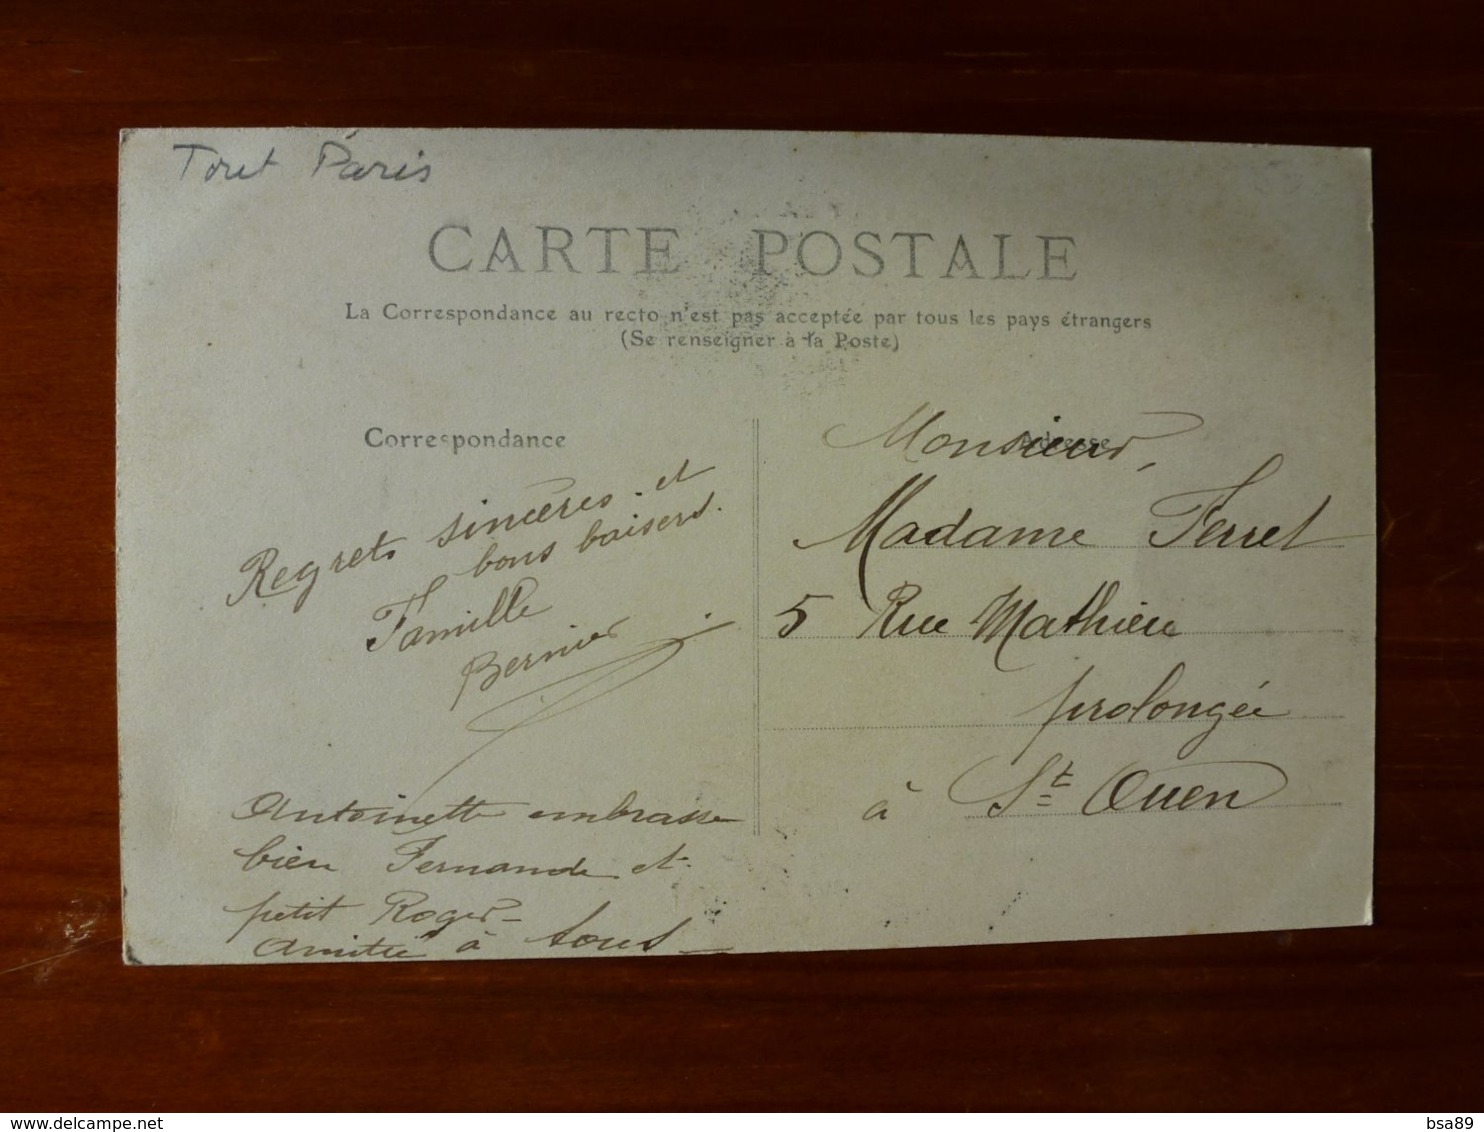 Tout Paris
CARTE POSTALE
La Correspondance au recto n'est pas acceptée par tous les pays étrangers
(Se renseigner à la Poste)
Correspondance
Regrets sincères et
bons baisers.
Famille
Bernier
Antoinette embrasse
bien Fernande et
petit Roger
amitié à tous
Adresse
Monsieur,
Madame Ferret
5 Rue Mathieu
prolongée
à St Ouen
delcampe.net
bsa89